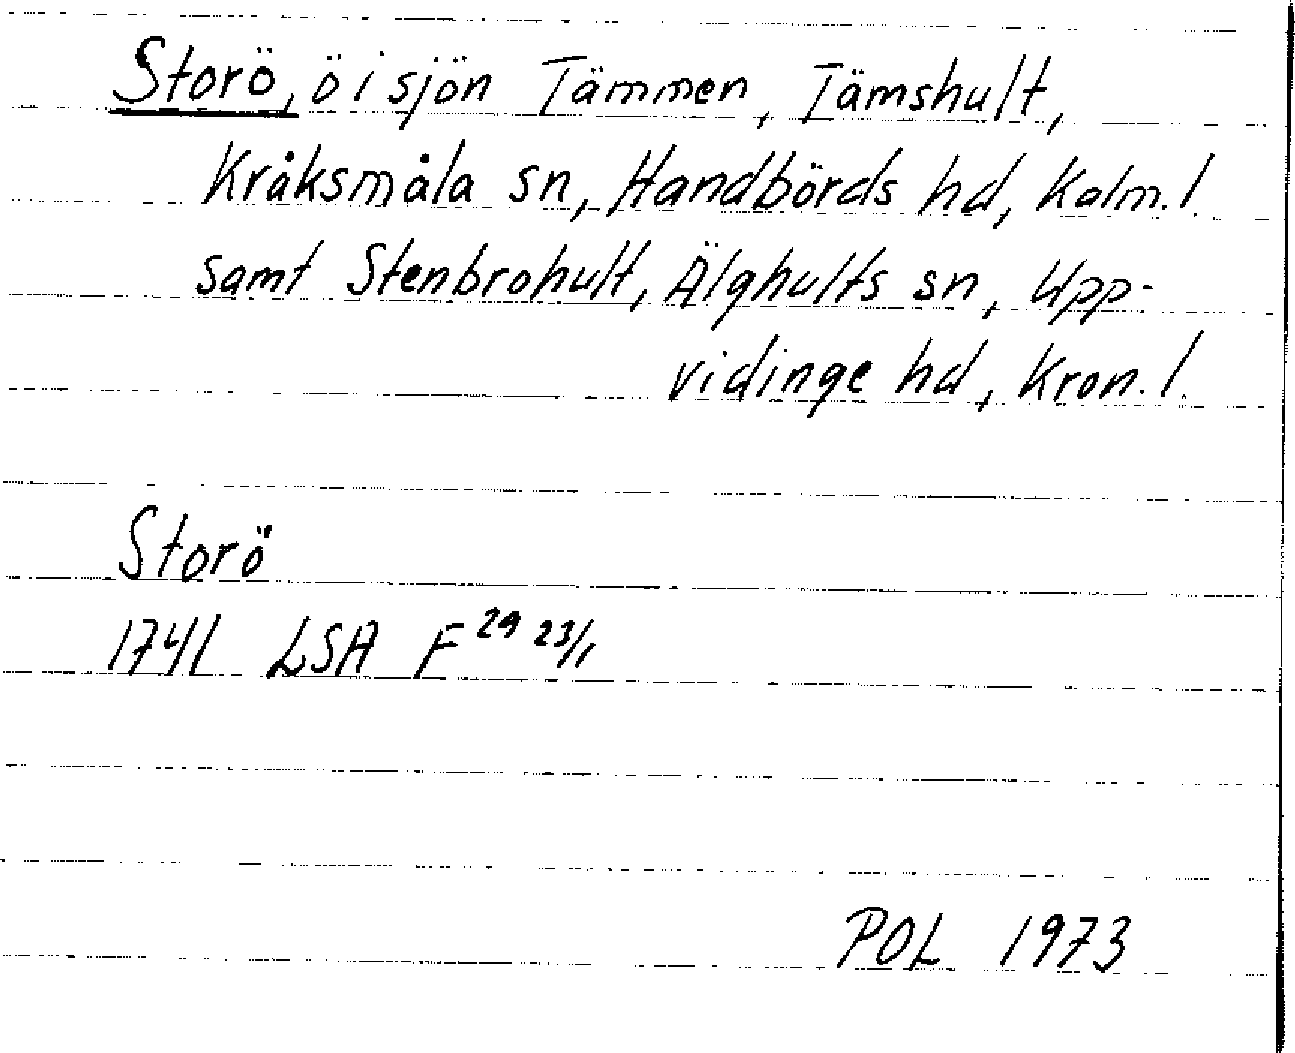 Storö, ö i sjön Tämmen, Tämshult,
Kråksmåla sn, Handbörds hd, Kalm. l.
samt Stenbrohult, Älghults sn, Upp-
vidinge hd, Kron. l.
Storö
1741 LSA F 29 23/1
POL 1973